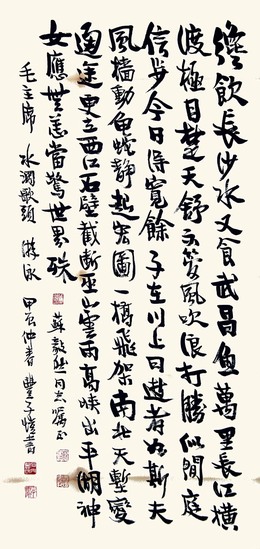 纔飲長沙水又食武昌魚萬里長江橫
渡極目楚天舒不管風吹浪打勝似閒庭
信步今日得寬餘子在川上曰逝者如斯夫
風檣動龜蛇靜起宏圖一橋飛架南北天塹變
通途更立西江石壁截斷巫山雲雨高峽出平湖神
女應無恙當驚世界殊
蘇毅然同志囑正
毛主席 水調歌頭 游泳 甲辰仲春 豐子愷書